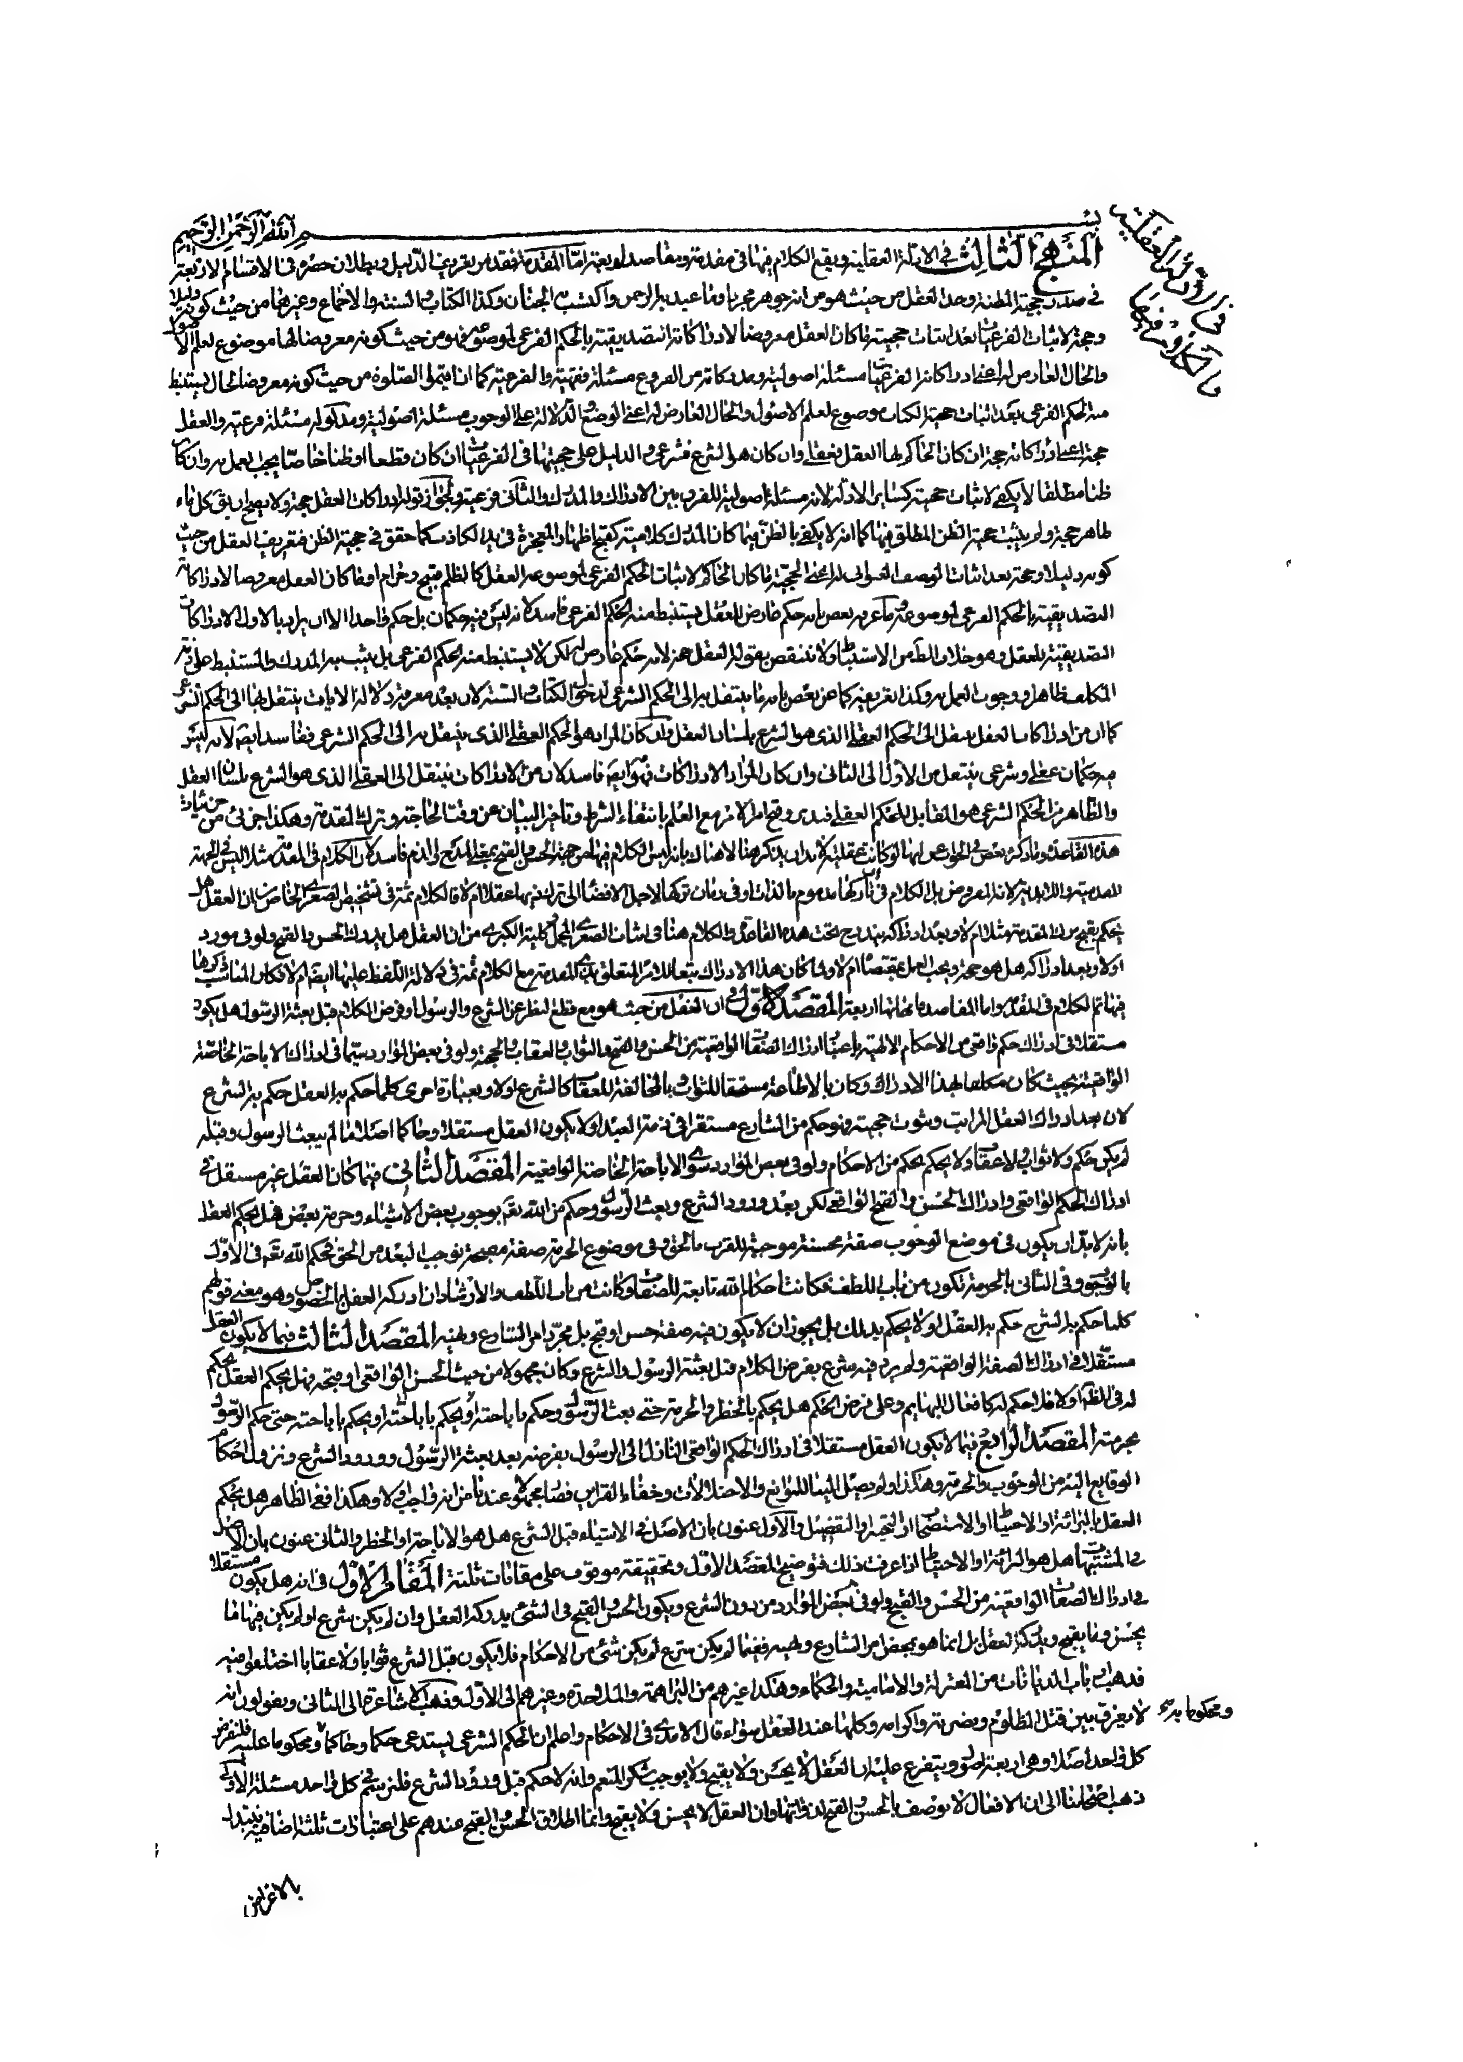 بسم الله الرحمن الرحيم
في الأدلة العقلية
والكلام فيها
المنهج الثالث في الادلة العقلية ويقع الكلام فيها في مقدمة ومقاصد اربعة امّا المقدمة فقد مر تعريف الدليل وبطلان حصره في الاقسام الاربعة
في صدر حجية المظنة وحد العقل من حيث هو من انه جوهر مجرد او ما عبد به الرحمن واكتسب به الجنان وكذا الكتاب والسنة والاجماع وغيرها من حيث كونه دليلا
وحجة لاثبات الفرعيات بعد اثبات حجيته فاكان العقل معروضا لادراكاته التصديقية بالحكم الفرعي لموضوع فهو من حيث كونه معروضا لها موضوع لعلم الاصول
والحال العارض له اعني ادراكاته الفرعيات مسئلة اصولية ومدركاته من الفروع مسئلة فقهية والفرعية كما ان اقيموا الصلوة من حيث كونه معروضا لحال يستنبط
منه الحكم الفرعي بعد اثبات حجية الكتاب موضوع لعلم الاصول والحال العارض له اعني الوضع والدلالة على الوجوب مسئلة اصولية ومدلوله مسئلة فرعية والعقل
حجة اعني ادراكاته حجة ان كان الحاكم بها العقل فعقلي وان كان هو الشرع فشرعي والدليل على حجيتها في الفرعيات ان كان قطعا او ظنا خاصا يجب العمل به وان كان
ظنا مطلقا لا يكفي لاثبات حجيته كسائر الادلة لانه مسئلة اصولية للفرق بين الادراك والمدرك والثاني فرعية
ظاهر حجية ولم يثبت حجية الظن المطلق فيها كما انه لا يكفي بالظن فيما كان المدرك كلامية كقبح اظهار المعجزة في يد الكاذب كما حقق في حجية الظن فتعريف العقل من حيث
كونه دليلا وحجة بعد اثبات الوصف العنواني له اعني الحجية ما كان الحاكم لاثبات الحكم الفرعي لموضوعه العقل كالظلم قبيح وحرام
التصديقية بالحكم الفرعي لموضوع وما عرفه بعض بانه حكم عارض للعقل يستنبط منه الحكم الفرعي فاسد لانه ليس فيه حكمان بل حكم واحد الا ان يراد بالاول الادراكات
التصديقية للعقل وهو خلاف الظاهر من الاستنباط ولا تنتقض بقوله العقل حجة لانه حكم عارض له لكن لا يستنبط منه الحكم الفرعي بل يثبت به المدرك والمستنبط على ذمة
المكلف ظاهرا ووجوب العمل به وكذا تعريفه كما عن بعض بانه ما ينتقل به الى الحكم الشرعي لدخول الكتاب والسنة لان بعد معرفة دلالة الايات ينتقل بها الى الحكم الشرعي
كما ان من ادراكات العقل ينتقل الى الحكم العقلي الذي هو الشرع بلسان العقل وان كان المراد هو الحكم العقلي الذي ينتقل به الى الحكم الشرعي ففاسد ايضا لانه ليس
فيه حكمان عقلي وشرعي ينتقل من الاول الى الثاني وان كان المراد الادراكات فهو ايضا فاسد لان من الادراكات ينتقل الى العقلي الذي هو الشرع بلسان العقل
والظاهر من الحكم الشرعي هو المقابل للحكم العقلي
هذه القاعدة وما ذكره بعض
يحكم بقبح ترك المقدمة مثلا ام لا وبعد ادراكه يندرج تحت هذه القاعدة والكلام هنا في اثبات الصغرى لمجمل كلية الكبرى من ان العقل هل يدرك الحسن والقبح ولو في مورد
اولا وبعد ادراكه هل هو حجة ويجب العمل بمقتضاه ام لا
فيها تم الكلام في المقدمة واما المقاصد فاعلم انها اربعة المقصد الاول في ان العقل من حيث هو مع قطع النظر عن الشرع والرسول وفرض الكلام قبل بعثة الرسول هل يكون
مستقلا في ادراك حكم واقعي من الاحكام الالهية باعتبار ادراك الصفات الواقعية من الحسن والقبح والثواب والعقاب والحجية ولو في بعض الموارد سيما في ادراك الاباحة الخاصة
الواقعية بحيث كان مكلفا بهذا الادراك وكان بالاطاعة مستحقا للثواب وبالمخالفة للعقاب كالشرع اولا وبعبارة اخرى كلما حكم به العقل حكم به الشرع
لان بعد ادراك العقل المراتب وثبوت حجيته فهو حكم من الشارع مستقرا في ذمة العبد اولا يكون العقل مستقلا وحاكما اصلا ما لم يبعث الرسول وقبله
لم يكن حكم ولا ثواب ولا عقاب ولا يحكم بحكم من الاحكام ولو في بعض الموارد سوى الاباحة الخاصة الواقعية المقصد الثاني فيما كان العقل غير مستقل في
ادراك الحكم الواقعي وادراك الحسن والقبح الواقعي لكن بعد ورود الشرع وبعث الرسول وحكم من الله تعم بوجوب بعض الاشياء وحرمة بعض فهل يحكم العقل
بانه لا بد ان يكون في موضع الوجوب صفة محسنة موجبة للقرب بالحق وفي موضوع الحرمة صفة مقبحة توجب البعد من الحق فحكم الله تعم في الاول
بالوجوب وفي الثاني بالحرمة تكون من باب اللطف فكانت احكام الله تابعة للصفات وكانت من باب اللطف والارشاد ان ادركه العقل بالخصوص وهو معنى قولهم
كلما حكم به الشرع حكم به العقل اولا يحكم بذلك بل يجوز ان لا يكون فيه صفة حسن او قبح بل مجرد امر الشارع ونهيه المقصد الثالث فيما لا يكون العقل
مستقلا في ادراك الصفة الواقعية ولم يرد فيه شرع بفرض الكلام قبل بعثة الرسول والشرع وكان مجهولا من حيث الحسن الواقعي او قبحه فهل يحكم العقل بحكم
له في الظاهر اولا فلا حكم له كافعال البهايم وعلى فرض الحكم هل يحكم بالحظر والحرمة حتى بعث الرسول وحكم باباحته او يحكم باباحته حتى حكم الرسول
بحرمته المقصد الرابع فيما لا يكون العقل مستقلا في ادراك الحكم الواقعي النازل الى الرسول بفرضه بعد بعثة الرسول وورود الشرع ونزول احكام
الوقايع اليه من الوجوب والحرمة وهكذا ولم يصل الينا للموانع والاختلالات وخفاء القراين فصار مجهولا عندنا من انه واجب اولا وهكذا ففي الظاهر هل يحكم
العقل بالبرائة او الاحتياط او الاستصحاب او التخيير او التفصيل والاول عنون بان الاصل في الاشياء قبل الشرع هل هو الاباحة او الحظر والثاني عنون بان الاصل
في المشتبهات هل هو البرائة او الاحتياط اذا عرفت ذلك فتوضيح المقصد الاول وتحقيقه موقوف على مقامات ثلثة المقام الاول في انه هل يكون مستقلا
في ادراك الصفات الواقعية من الحسن والقبح ولو في بعض الموارد من دون الشرع ويكون الحسن والقبح في الشئ يدركه العقل وان لم يكن شرع او لم يكن فيها ما
يحسن وما يقبح ويدركه العقل بل انما هو بمحض امر الشارع ونهيه ففيما لم يكن شرع لم يكن شئ من الاحكام فلا يكون قبل الشرع ثوابا ولا عقابا اختلفوا فيه
فذهب ارباب الديانات من المعتزلة والامامية والحكماء وهكذا غيرهم من البراهمة والملاحدة وغيرهم الى الاول وذهب الاشاعرة الى الثاني ويقولون انه
لا يعرف بين قتل المظلوم وضربه واكرامه وكلها عند العقل سواء قال الامدي في الاحكام واعلم ان الحكم الشرعي يستدعي حكما وحاكما ومحكوما عليه فلنفرض
ومحكوما به
كل واحد اصلا وهي اربعة اصول ويتفرع عليه ان العقل لا يحسن ولا يقبح ولا يوجب شكر المنعم وانه لا حكم قبل ورود الشرع فلنرسم في كل واحد مسئلة الاولى
ذهب اصحابنا الى ان الافعال لا توصف بالحسن والقبح لذواتها وان العقل لا يحسن ولا يقبح وانما اطلاق الحسن والقبح عندهم على اعتبارات ثلثة اضافية
بالاغراض